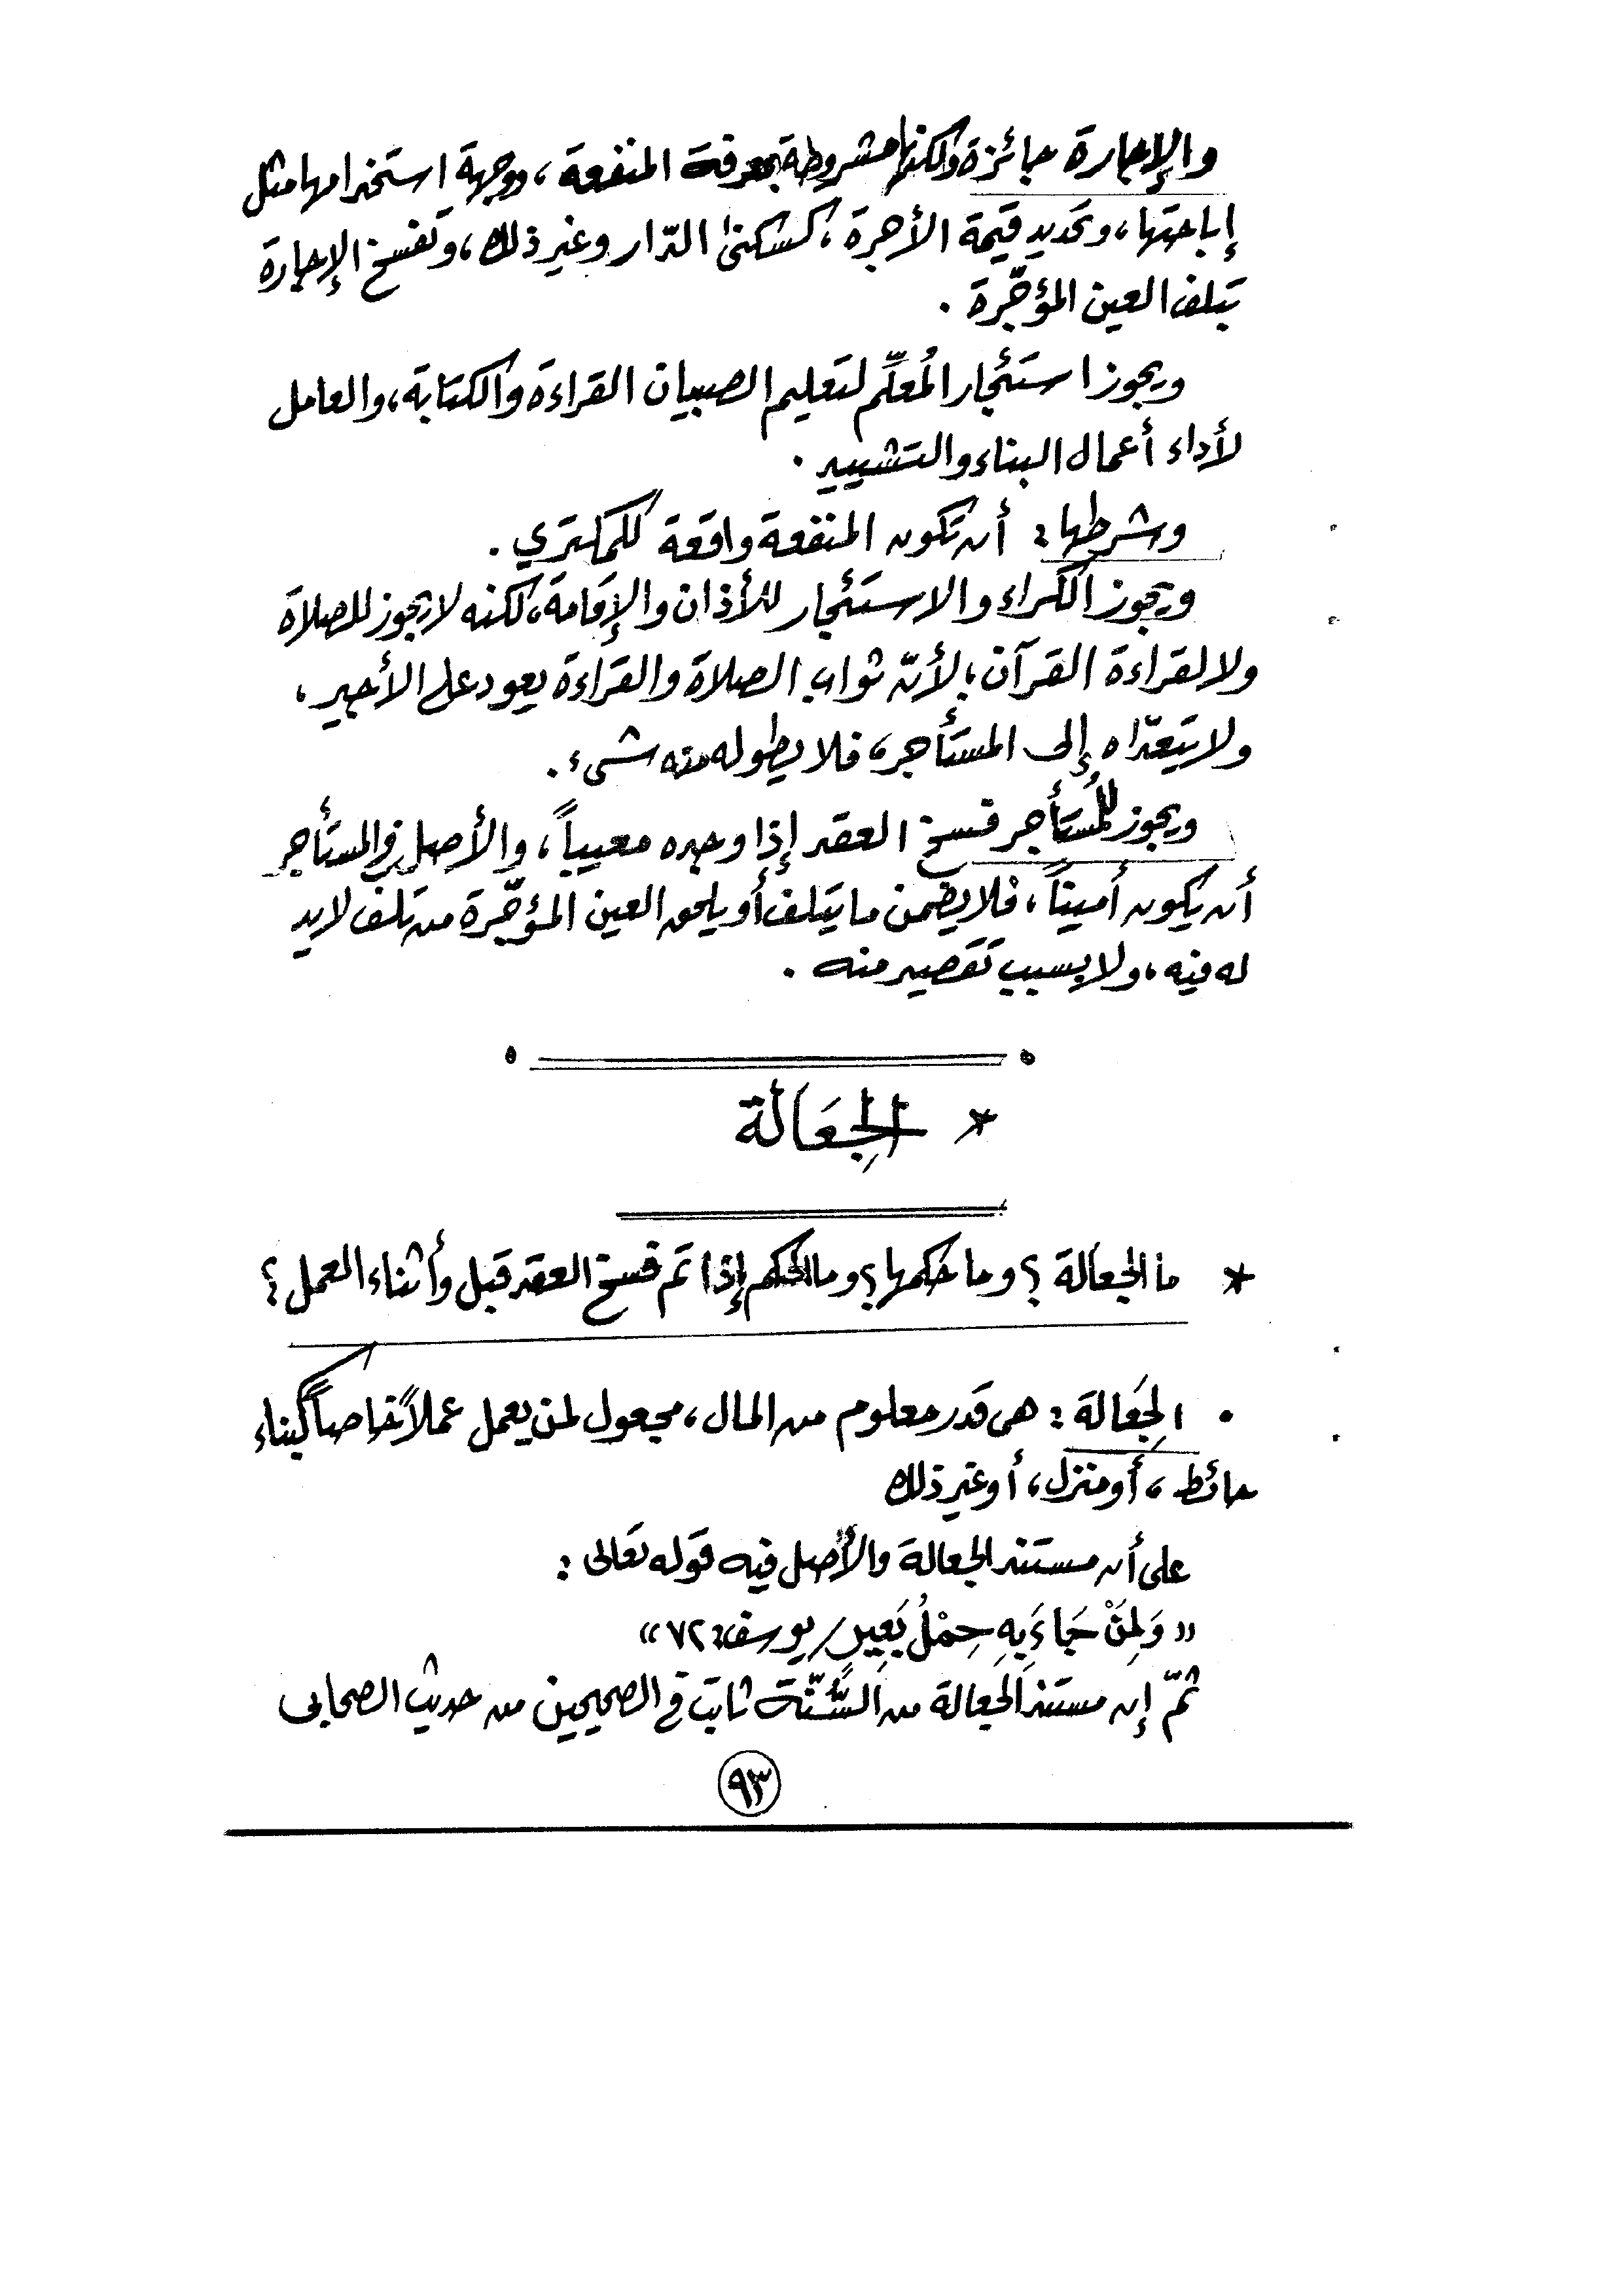 والإجارة جائزة ولكنها مشروطة بمعرفة المنفعة، ووجهة استخدامها مثل
إباحتها، وتحديد قيمة الأجرة، كسكنى الدّار وغير ذلك، وتفسخ الإجارة
بتلف العين المؤجّرة.
ويجوز استئجار المُعلِّم لتعليم الصبيان القراءة والكتابة، والعامل
لأداء أعمال البناء والتشييد.
وشرطها: أن تكون المنفعة واقعة للمكتري.
ويجوز الكراء والاستئجار للأذان والإقامة، لكنه لا يجوز للصلاة
ولا لقراءة القرآن؛ لأنّ ثواب الصلاة والقراءة يعود على الأجير،
ولا يتعدّاه إلى المستأجر، فلا يطوله منه شىء.
ويجوز للمُستأجر فسخ العقد إذا وجده معيباً، والأصل في المستأجر
أن يكون أميناً، فلا يضمن ما يتلف أو يلحق العين المؤجّرة من تلف لا يد
له فيه، ولا بسبب تقصير منه.
* الجِعَالة
* ما الجعالة؟ وما حكمها؟ وما الحكم إذا تم فسخ العقد قبل وأثناء العمل؟
• الجِعَالة: هى قدر معلوم من المال، مجعول لمن يعمل عملاً خاصاً كبناء
حائط، أو منزل، أو غير ذلك
على أن مستند الجعالة والأصل فيه قوله تعالى:
«وَلِمَنْ جَاءَ بِهِ حِمْلُ بَعِيرٍ/يوسف:٧٢»
ثمّ إن مستند الجعالة من السُّنّة ثابت في الصحيحين من حديث الصحابى
٩٣